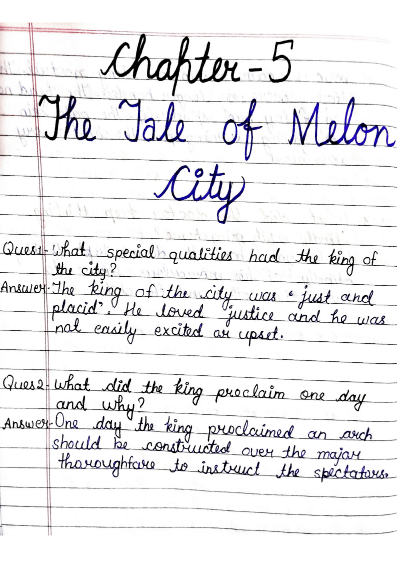 Chapter-5
The Tale of Melon
City
Ques1- What special qualities had the king of
the city?
Answer- The king of the city was "just and
placid". He loved justice and he was
not easily excited or upset.
Ques2- What did the king proclaim one day
and why?
Answer- One day the king proclaimed an arch
should be constructed over the major
thoroughfare to instruct the spectators.